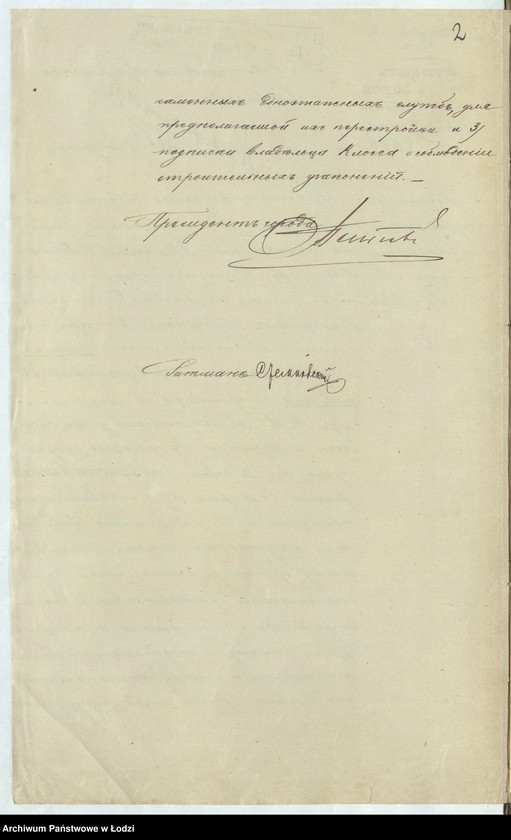 2
каменныхъ одноэтажныхъ службъ, для
предполагаемой ихъ перестройки и 3)
подписки владѣльца Клосса о соблюденіи
строительныхъ узаконеній. —
Президентъ города
Archiwum Państwowe w Łodzi